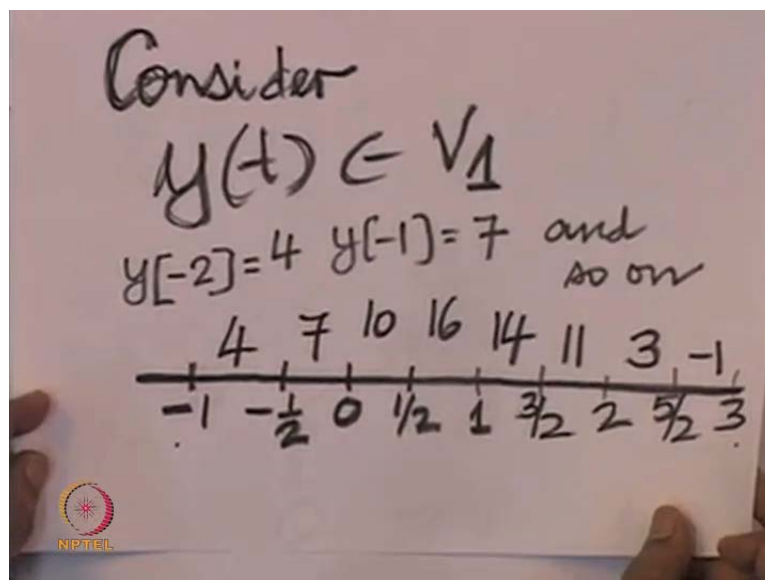 Consider
y(t) ∈ V1
y[-2]=4 y[-1]=7 and
so on
4 7 10 16 14 11 3 -1
-1 -1/2 0 1/2 1 3/2 2 5/2 3
NPTEL